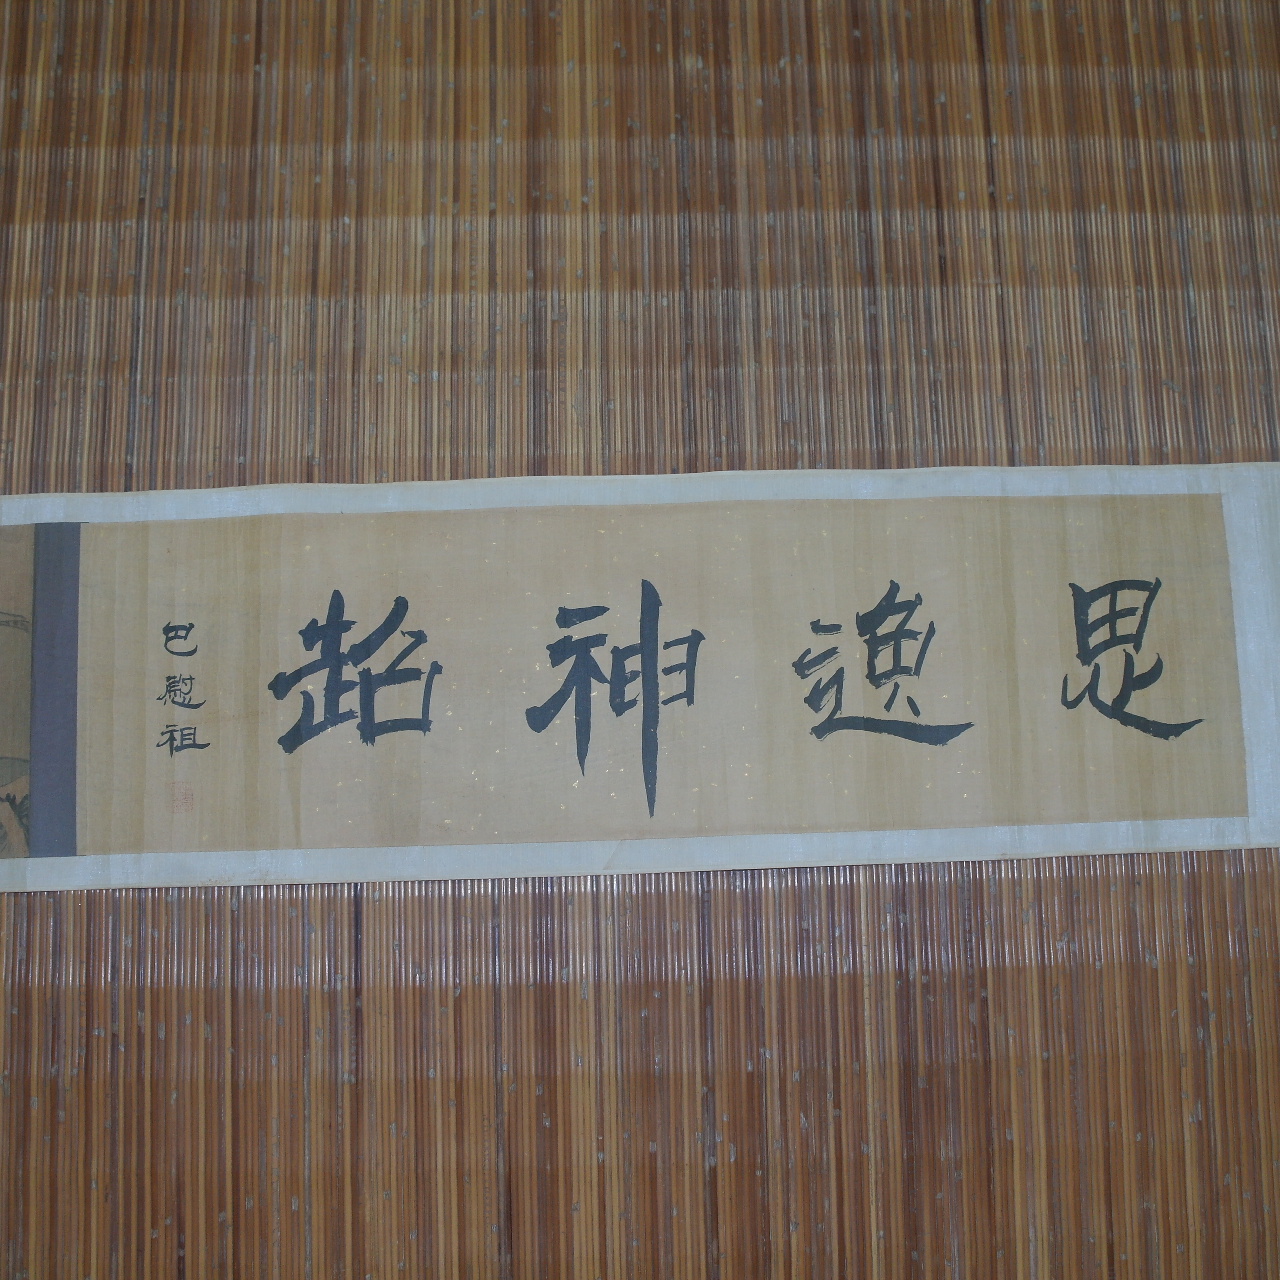 思逸神超
巴慰祖